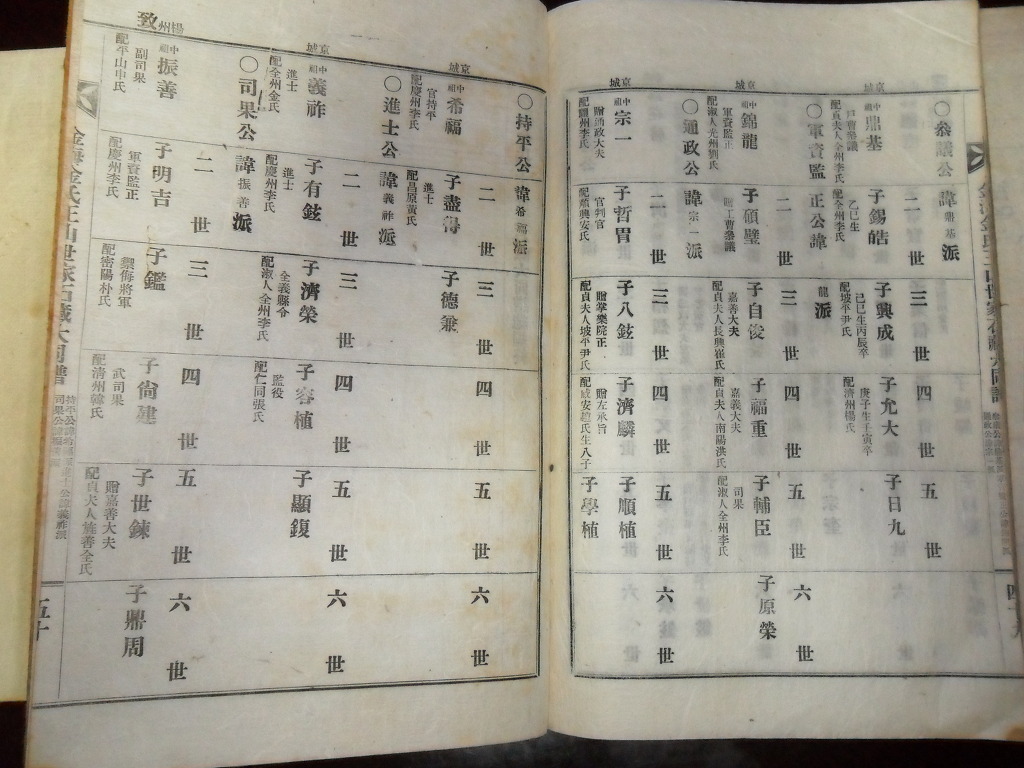 京城
京城
京城
〇叅議公 諱鼎基派
二世
三世
四世
五世
中祖 鼎基
戶曹叅議
配貞夫人全州李氏
子錫皓
乙巳生
配全州李氏
子興成
己巳生丙辰卒
配坡平尹氏
子允大
庚子生壬寅卒
配濟州楊氏
子日九
〇軍資監正公諱
龍派
二世
三世
四世
五世
六世
中祖 錦龍
軍資監正
配淑人光州劉氏
子碩璧
贈工曹叅議
子自俊
嘉善大夫
配貞夫人長興崔氏
子福重
嘉義大夫
配貞夫人南陽洪氏
子輔臣
司果
配淑人全州李氏
子原榮
〇通政公 諱宗一派
二世
三世
四世
五世
六世
中祖 宗一
贈通政大夫
子哲胃
官判官
配順興安氏
子八鉉
贈掌樂院正
配貞夫人坡平尹氏
子濟麟
贈左承旨
配咸安趙氏生八子
子順植
子學植
四十九
京城
京城
楊州
致
〇持平公 諱希福派
二世
三世
四世
五世
六世
中祖 希福
官持平
配慶州李氏
子盡得
進士
配昌原黃氏
子德兼
〇進士公 諱義祚派
二世
三世
四世
五世
六世
中祖 義祚
進士
配全州金氏
子有鉉
進士
配慶州李氏
子濟榮
全義縣令
配淑人全州李氏
子容植
監役
配仁同張氏
子顯鍑
〇司果公 諱振善派
二世
三世
四世
五世
六世
中祖 振善
副司果
配平山申氏
子明吉
軍資監正
配慶州李氏
子鑑
禦侮將軍
配密陽朴氏
子尙建
武司果
配淸州韓氏
子世鍊
贈嘉善大夫
配貞夫人旌善全氏
子鼎周
五十